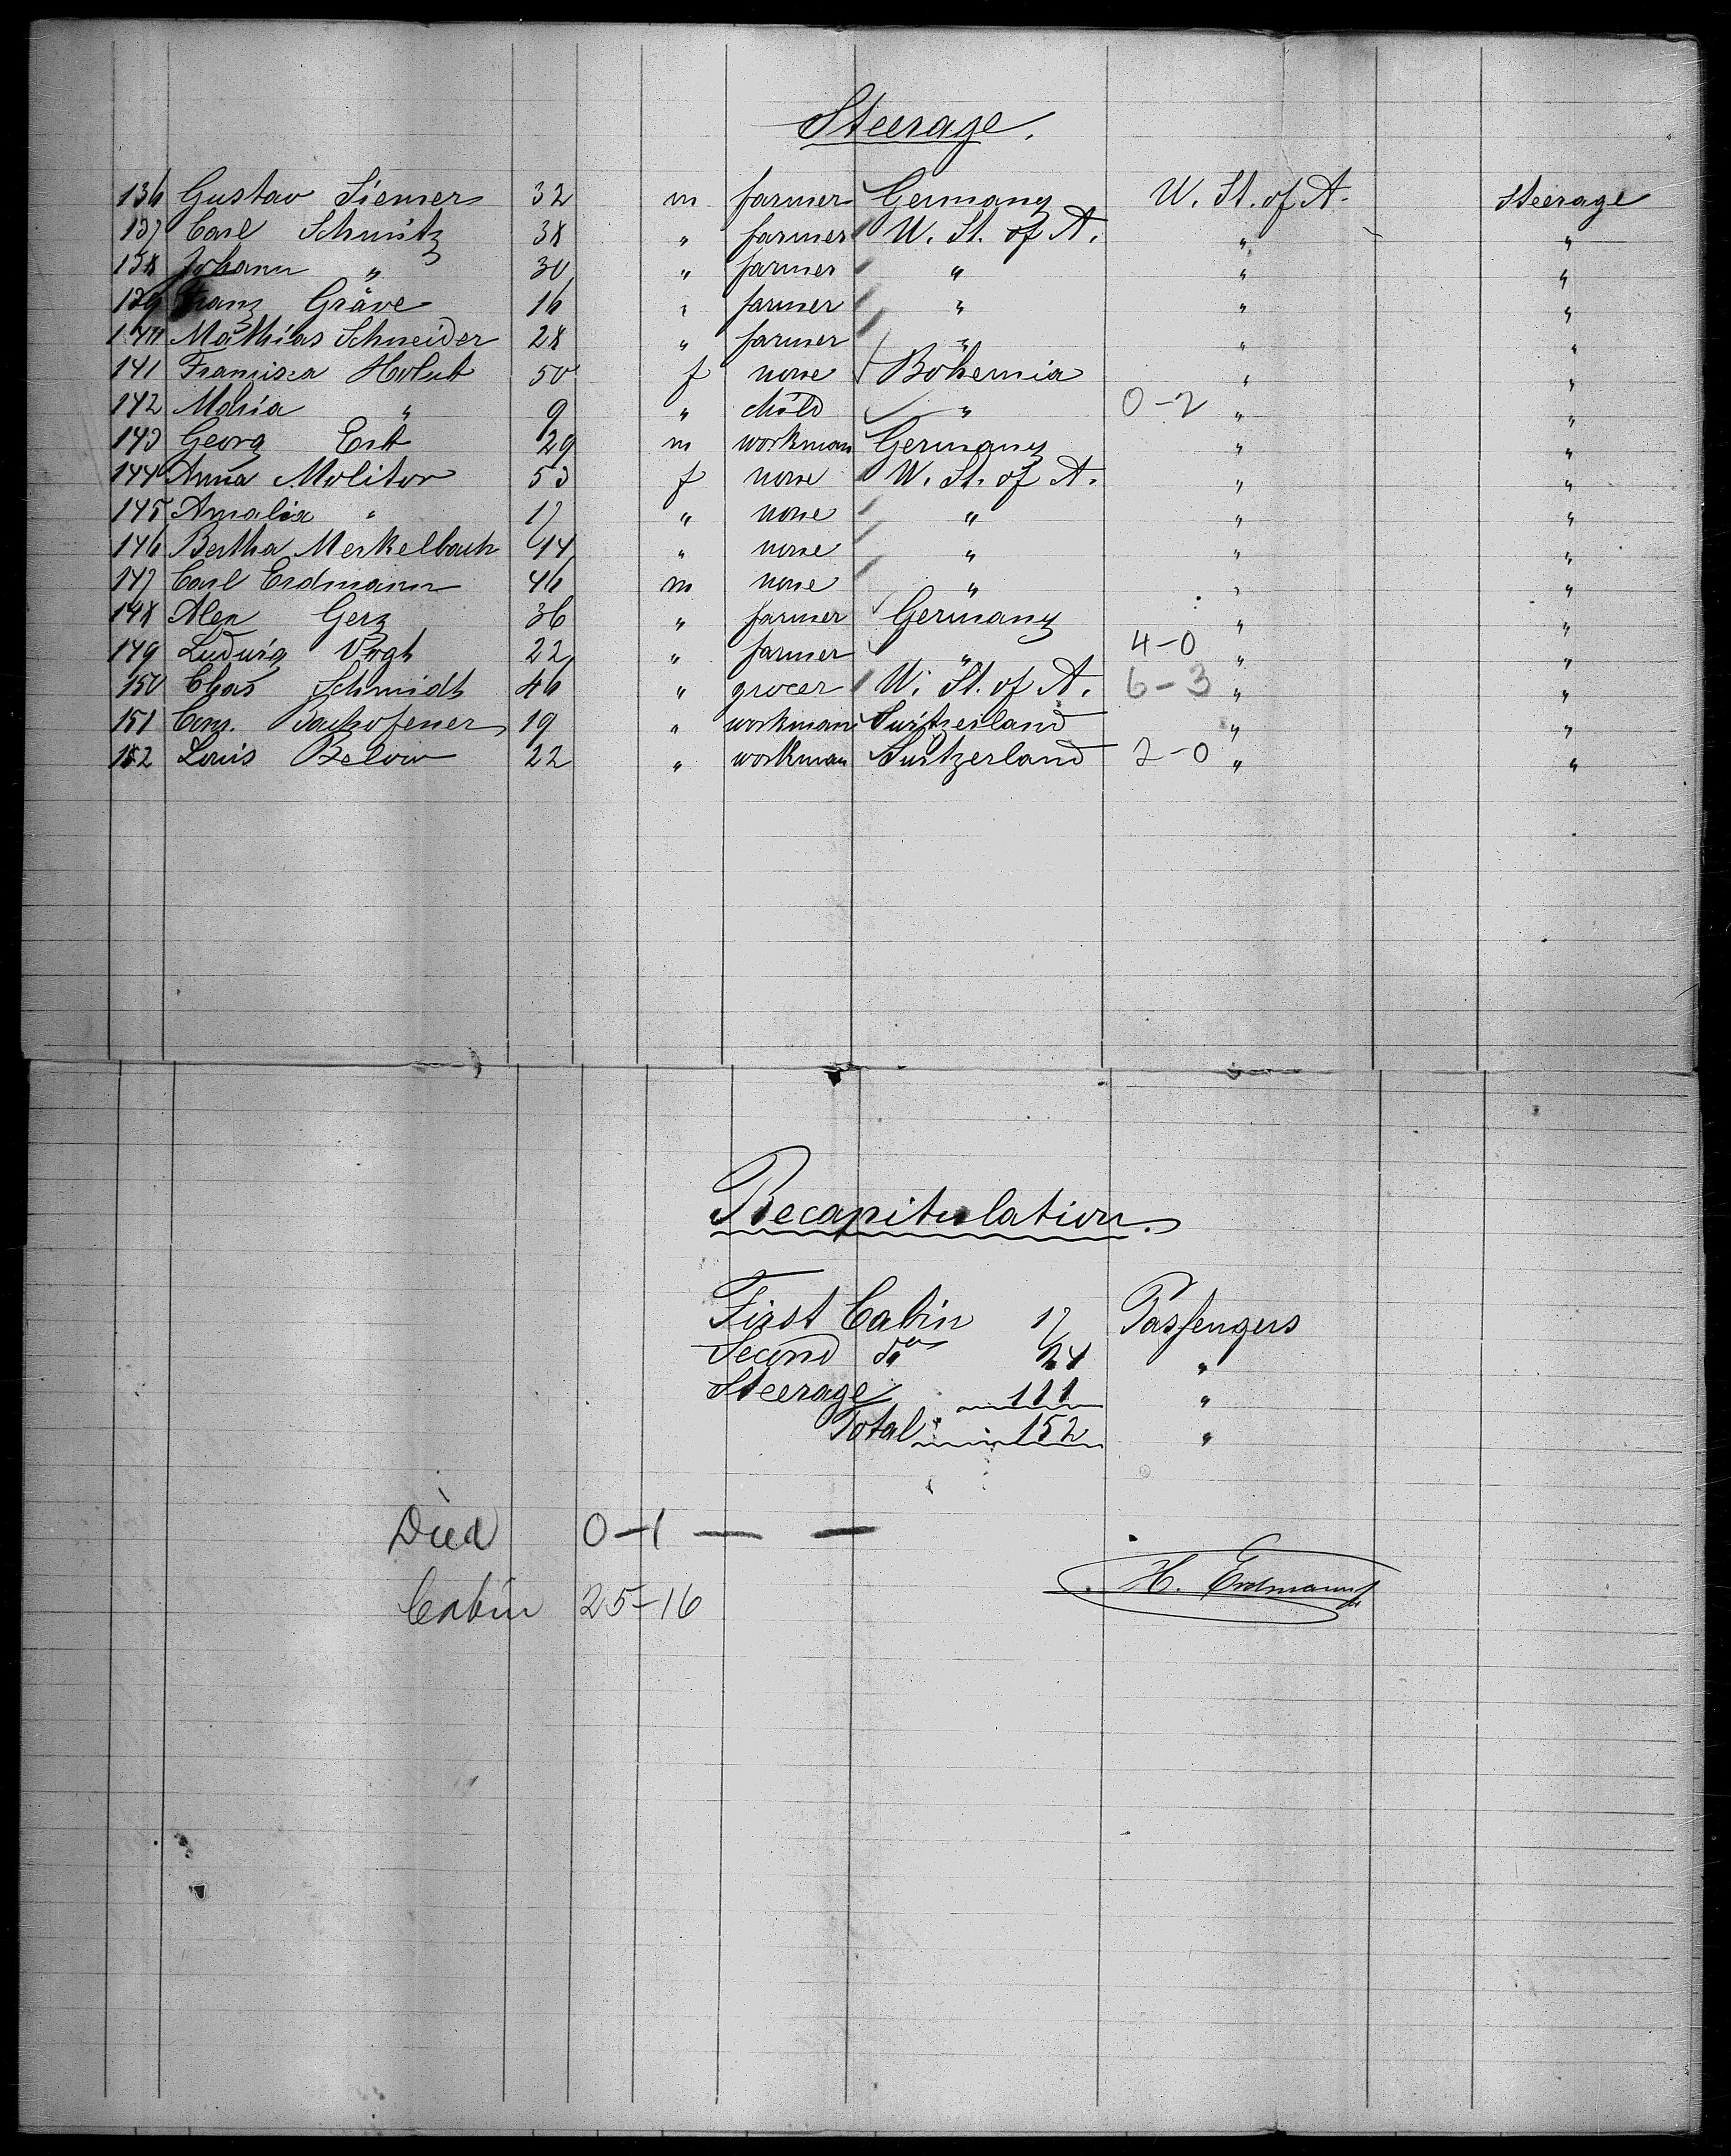 Steerage.
136 Gustav Siemer 32 m farmer Germany U. St. of A. Steerage
137 Carl Schmitz 38 " farmer U. St. of A. " "
138 Johann " 30 " farmer " " "
139 Franz Gräve 16 " farmer " " "
140 Mathias Schneider 28 " farmer " " "
141 Franziska Holub 50 f none Bohemia " "
142 Maria " 9 " child " 0-2 " "
143 Georg Ert 29 m workman Germany " "
144 Anna Molitor 53 f none U. St. of A. " "
145 Amalia " 17 " none " " "
146 Bertha Merkelbach 14 " none " " "
147 Carl Erdmann 46 m none " " "
148 Alex Gerz 36 " farmer Germany " "
149 Ludwig Vogt 22 " farmer " 4-0 " "
150 Chas Schmidt 46 " grocer U. St. of A. 6-3 " "
151 19 " workman Switzerland " "
152 Louis Below 22 " workman Switzerland 2-0 " "
Recapitulation.
First Cabin 17 Passengers
Second do 24 "
Steerage 111 "
Total 152 "
Died 0-1 — —
Cabin 25-16
H. Erdmann